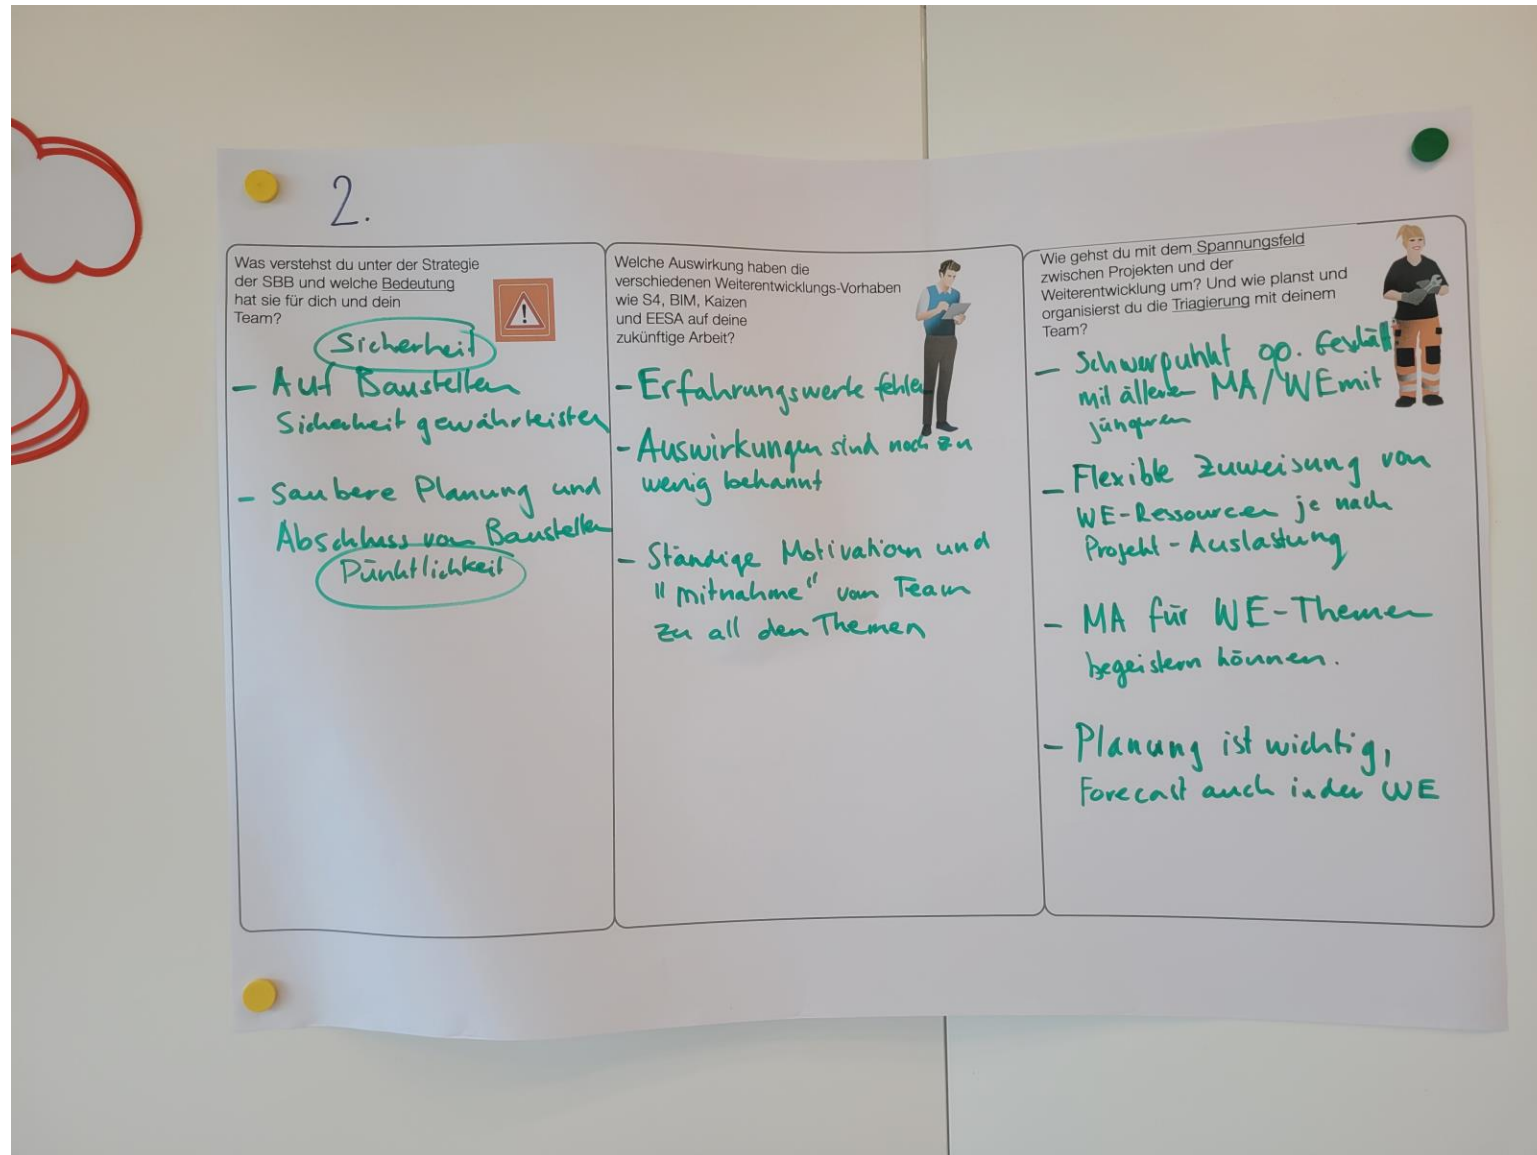 2.
Was verstehst du unter der Strategie
der SBB und welche Bedeutung
hat sie für dich und dein
Team?
Sicherheit
- Auf Baustellen
Sicherheit gewährleisten
- Saubere Planung und
Abschluss von Baustellen
Pünktlichkeit
Welche Auswirkung haben die
verschiedenen Weiterentwicklungs-Vorhaben
wie S4, BIM, Kaizen
und EESA auf deine
zukünftige Arbeit?
- Erfahrungswerte fehlen
- Auswirkungen sind noch zu
wenig bekannt
- Ständige Motivation und
"mitnahme" vom Team
zu all den Themen
Wie gehst du mit dem Spannungsfeld
zwischen Projekten und der
Weiterentwicklung um? Und wie planst und
organisierst du die Triagierung mit deinem
Team?
- Schwerpunkt op. Geschäft
mit älteren MA/WE mit
jüngeren
- Flexible Zuweisung von
WE-Ressourcen je nach
Projekt-Auslastung
- MA für WE-Themen
begeistern können.
- Planung ist wichtig,
Forecast auch in der WE